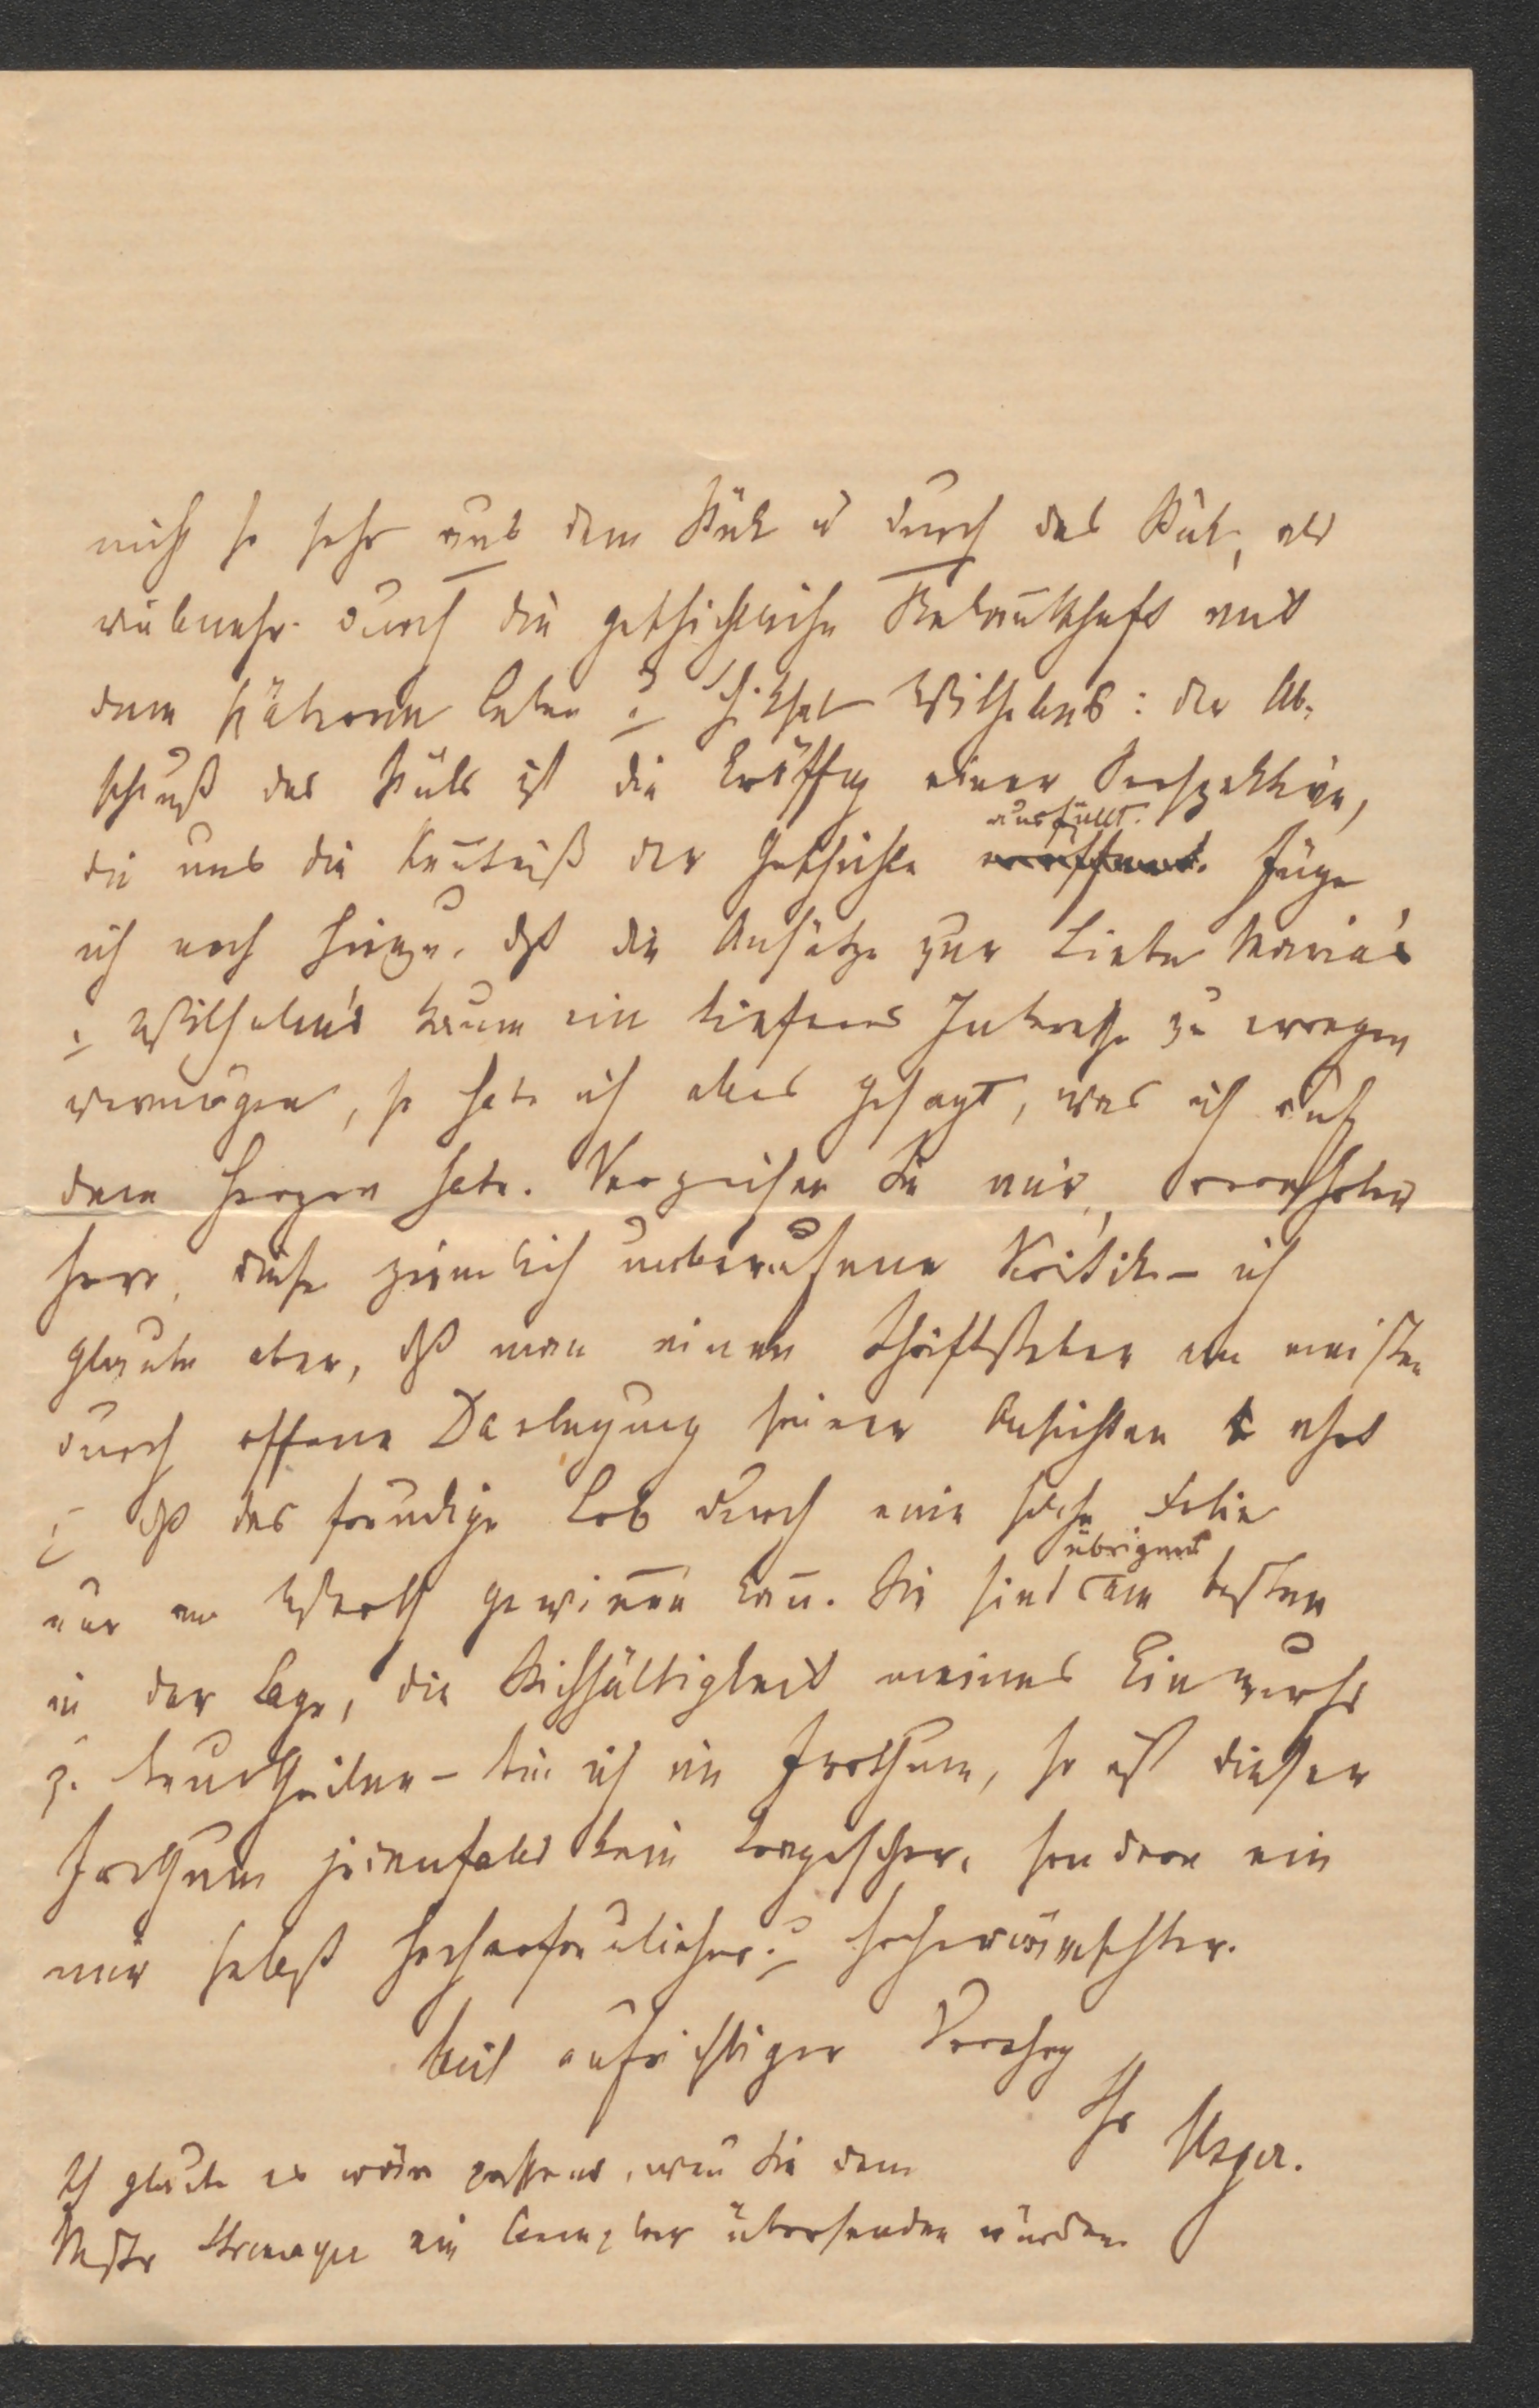 nicht so sehr aus dem Stück u durch das Stück, als
vielmehr durch die geschichtliche Bekanntschaft mit
dem späteren Leben u. Schiksal Wilhelms: der Ab-
schluß des Stücks ist die Eröffng einer Perspektive,
die uns die Kenntniß der Geschichte eröffnet. ausfüllt. Füge
ich noch hinzu, dß die Ansätze zur Liebe Maria's
u. Wilhelm's kaum ein tieferes Interesse zu erregen
vermögen, so habe ich alles gesagt, was ich auf
dem Herzen habe. Verzeihen Sie mir, verehrter
Herr, diese ziemlich unberufene Kritik – ich
glaube aber, dß man einen Schriftsteller am meisten
durch offene Darlegung seiner Ansichten ehrt
u. dß das freudige Lob durch eine solche Folie
nur an Werth gewinnen kann. Sie sind übrigens am besten
in der Lage, die Stichhältigkeit meines Einwurfs
z. beurtheilen – bin ich im Irrthum, so ist dieser
Irrthum jedenfalls kein tragischer, sondern ein
mir selbst hocherfreulicher u. hocherwünschter.
Mit aufrichtiger Verehrg
Ihr
Ich glaube es wäre passend, wenn Sie dem
Mstr Stremayr ein Exemplar übersenden würden.